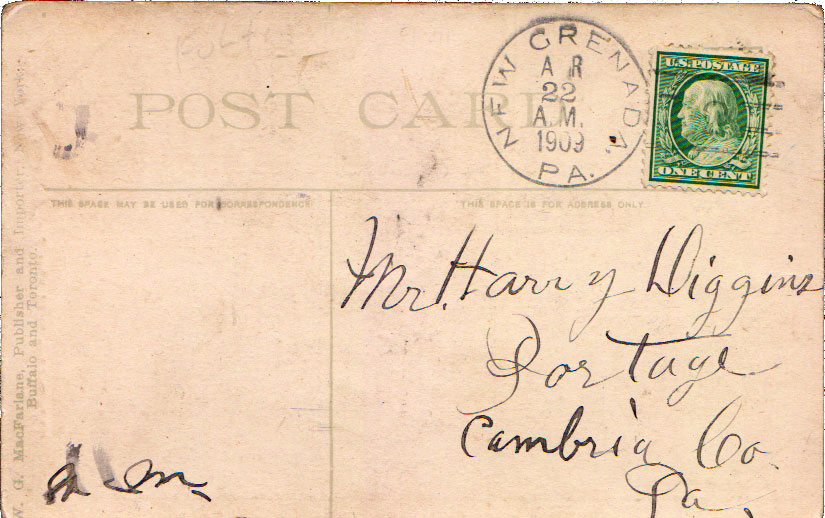 POST CARD
NEW GRENADA,
AR
22
A.M.
1909
PA.
U.S. POSTAGE
ONE CENT
THIS SPACE MAY BE USED FOR CORRESPONDENCE
THIS SPACE IS FOR ADDRESS ONLY
W. G. MacFarlane, Publisher and Importer, New York,
Buffalo and Toronto.
Mr. Harry Diggins
Portage
Cambria Co.
Pa,